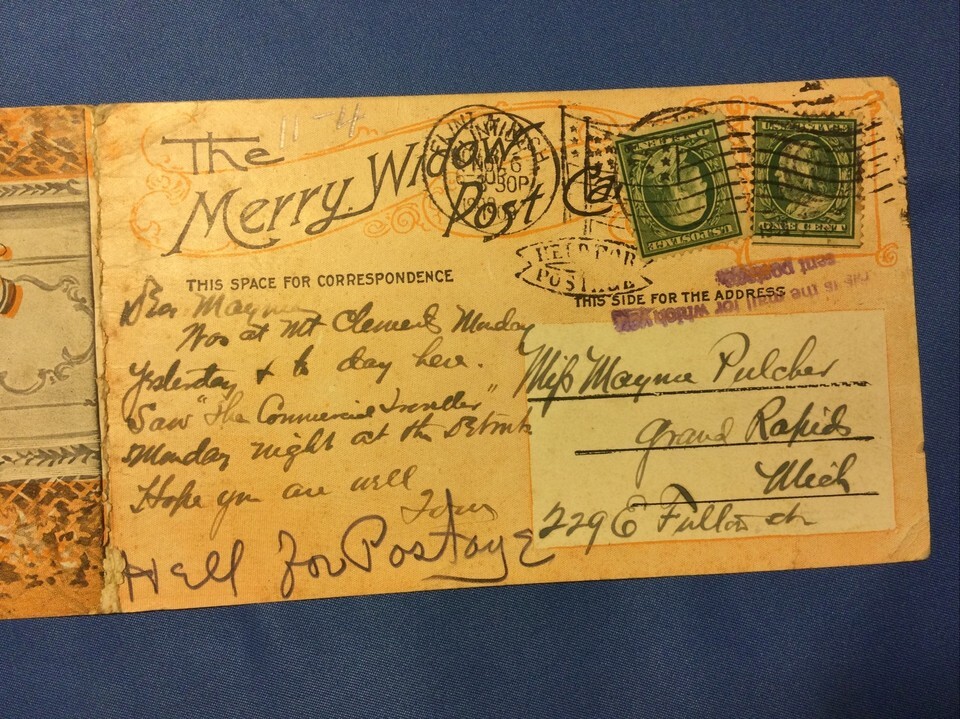 11-4
The
Merry Widow
Post Ca
FLINT, MICH.
NOV 6
8 30P
HELD FOR
POSTAGE
U.S. POSTAGE
U.S. POSTAGE
ONE CENT
This is the mail for which you
sent postage.
THIS SPACE FOR CORRESPONDENCE
THIS SIDE FOR THE ADDRESS
Dear Mayme
Was at Mt Clemens Monday
Yesterday & to day here.
Saw "The Commercial Traveller"
Monday night at the Detroit
Hope you are well
Tom
Held for Postage
Miss Mayme Pulcher
Grand Rapids
Mich
229 E Fulton St